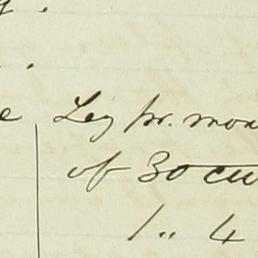 e Leg pr. mon
of 30 cu
1.. 4